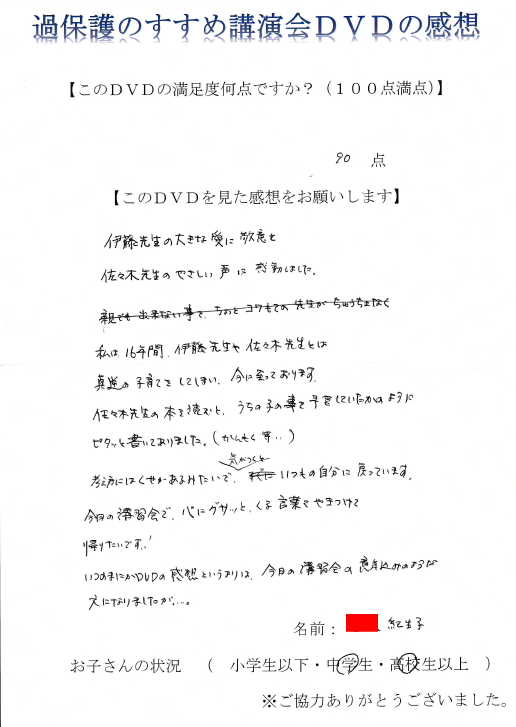 過保護のすすめ講演会ＤＶＤの感想
【このＤＶＤの満足度何点ですか？（１００点満点）】
90 点
【このＤＶＤを見た感想をお願いします】
伊藤先生の大きな愛に敬意を
佐々木先生のやさしい声に感動しました。
親でも出来ない事で、ちょっとコワもての先生が
私は16年間、伊藤先生や佐々木先生とは
真逆の子育てをしてしまい、今に至っております。
佐々木先生の本を読むと、うちの子の事で予言していたかのように
ピタッと書いてありました。(かんもく等..)
気がつくと
考え方にはくせがあるみたいで、いつもの自分に戻っています。
今日の講習会で、心にグサッと、くる言葉でやきつけて
帰りたいです!
いつのまにかDVDの感想というよりは、今日の講習会の意気込みのような
文になりましたが...。
名前： 紀生子
お子さんの状況 （ 小学生以下・中学生・高校生以上 ）
※ご協力ありがとうございました。